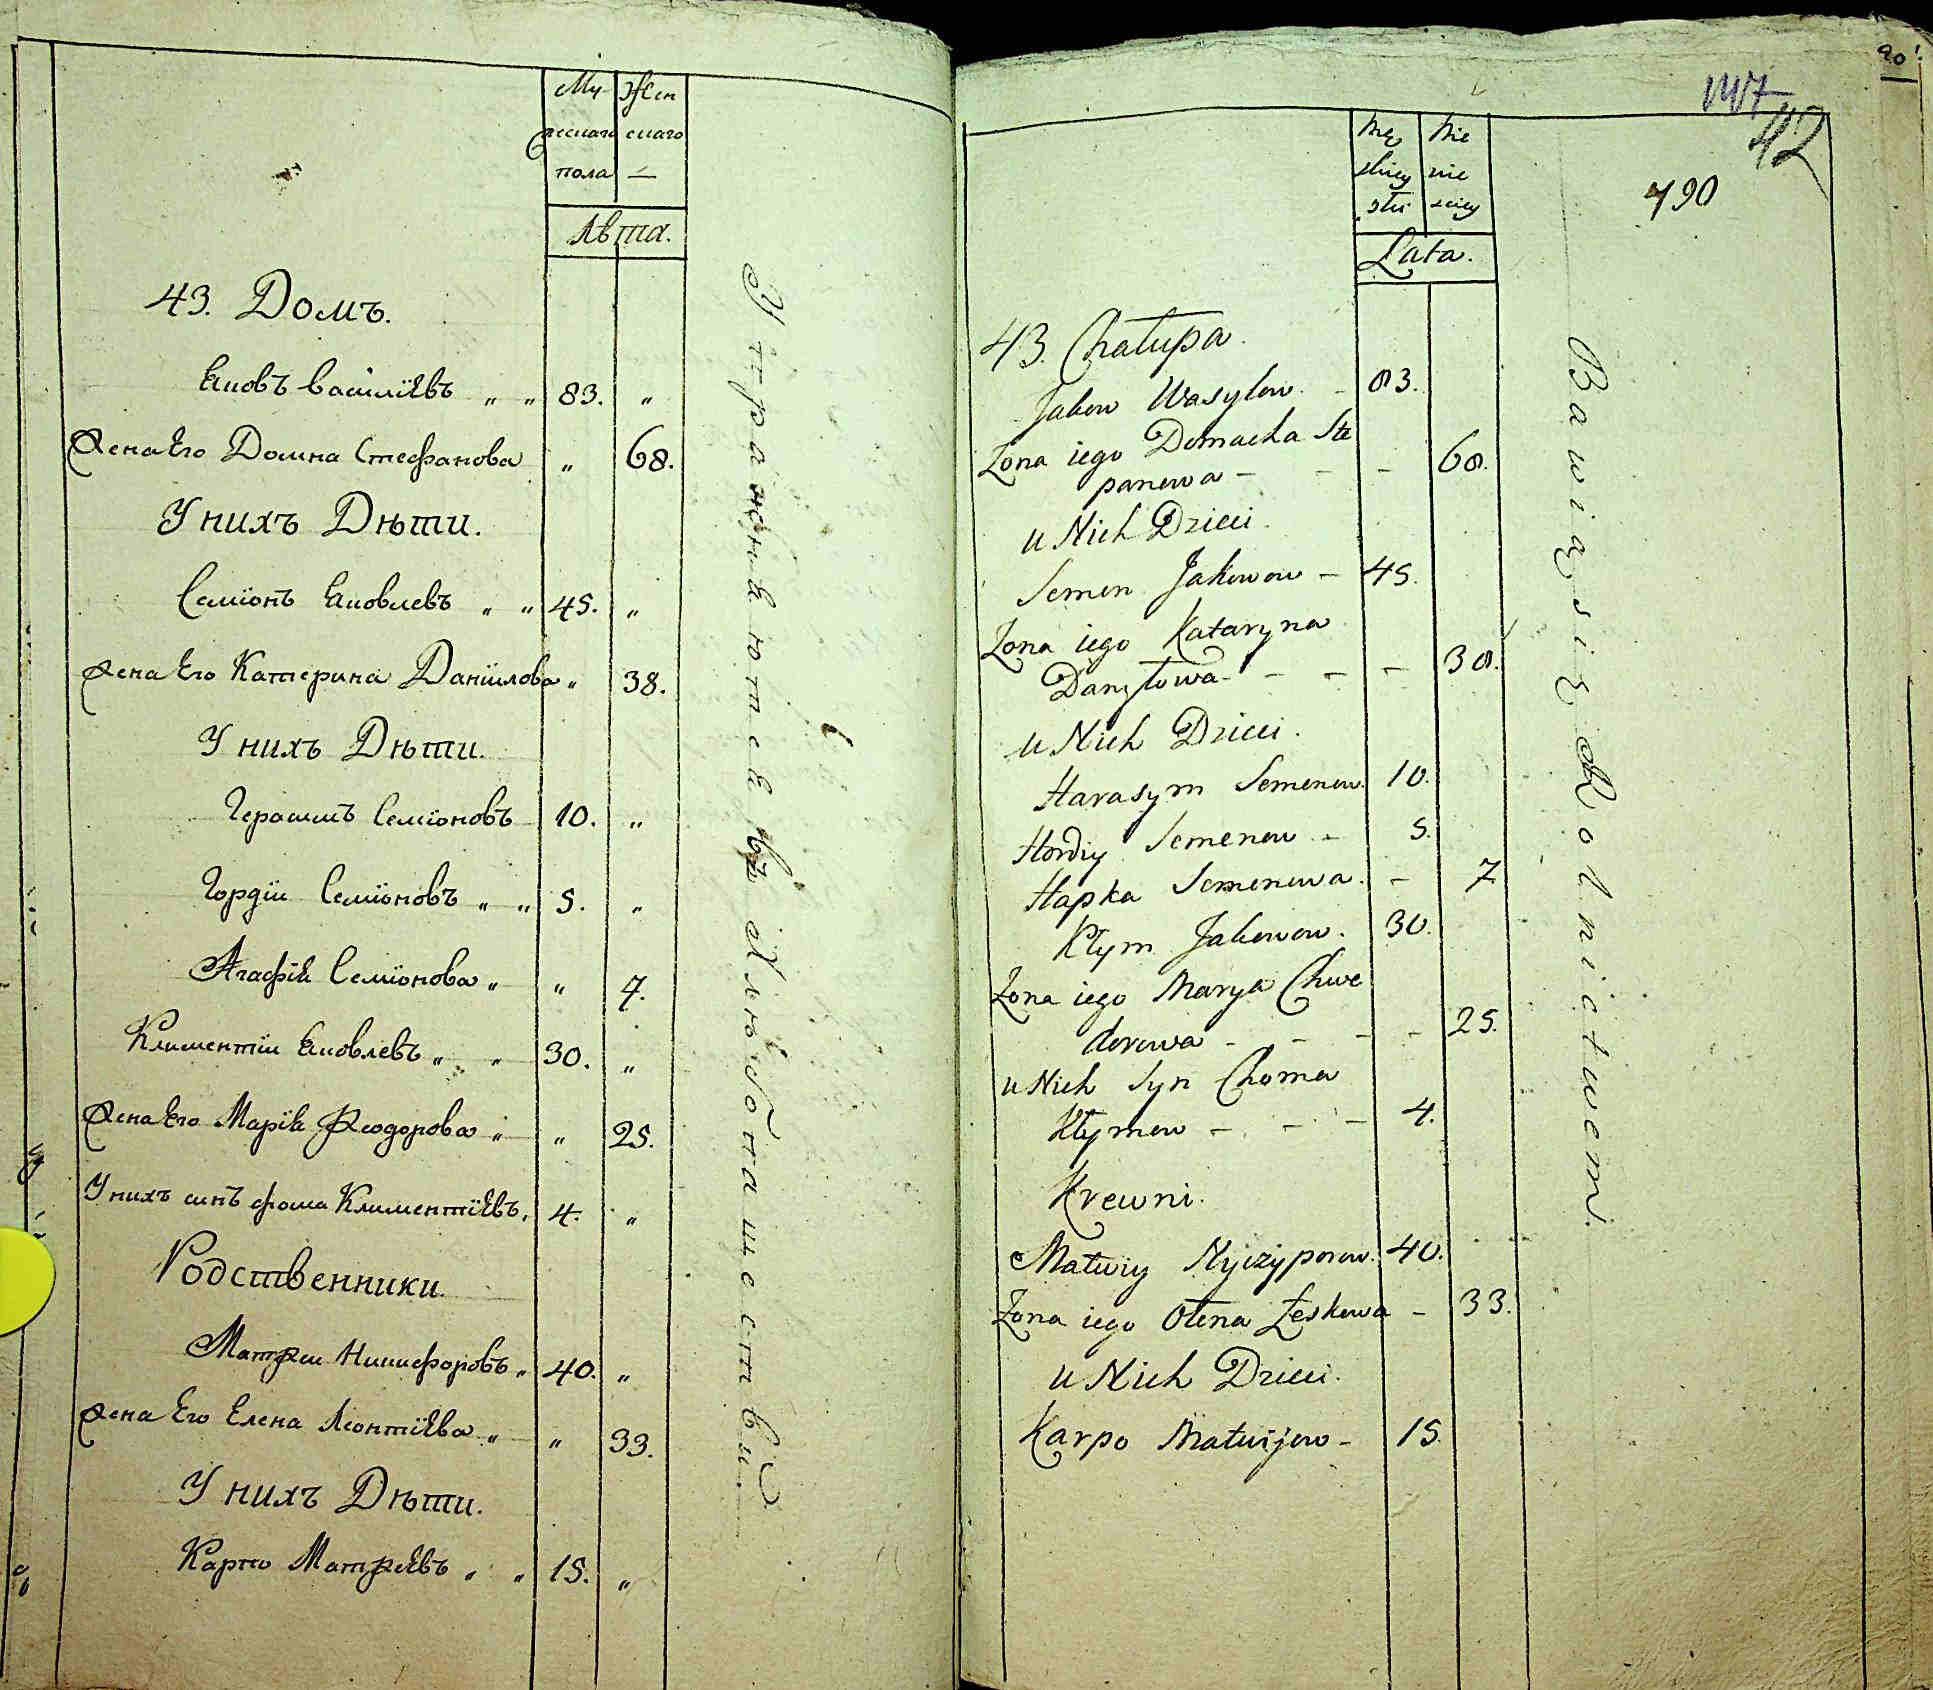 Му- Жен
жескаго скаго
пола —
Лѣта.
43. Домъ.
Яковъ Василіевъ „ „ 83. „
Жена Его Домна Стефанова „ 68.
У нихъ Дѣти.
Семіонъ Яковлевъ „ „ 45. „
Жена Его Катерина Даніилова „ 38.
У нихъ Дѣти.
Герасимъ Семіоновъ 10. „
Гордіи Семіоновъ „ „ 5. „
Агафія Семіонова „ „ 7.
Климентіи Яковлевъ „ „ 30. „
Жена Его Марія Феодорова „ „ 25.
У нихъ синъ фома Климентіевъ. 4. „
Родственники.
Матфеи Никифоровъ „ 40. „
Жена Его Елена Леонтіева „ „ 33.
У нихъ Дѣти.
Карпо Матфеевъ „ „ 15. „
Упражняются въ хлѣбопашествѣ.
90
42
490
Mę Nie
skiey wie
sciey
Lata.
43. Chałupa.
Jakow Wasylow. - 83.
Żona iego Domacha Ste
panowa - - - 68.
u Nich Dzieci.
Semen Jakowow - 45.
Żona iego Kataryna
Danyłowa - - - - 38.
u Nich Dzieci.
Harasym Semenow. 10.
Hordiy Semenow - 5.
Hapka Semenowa. - 7
Kłym Jakowow. 30.
Żona iego Marya Chwe
dorowa - - - - 25.
u Nich Syn Choma
Kłymow - - - 4.
Krewni.
Matwiy Nyczyporow. 40.
Żona iego Ołena Łeskowa - 33.
u Nich Dzieci.
Karpo Matwijow - 15.
Bawią się Rolnictwem.